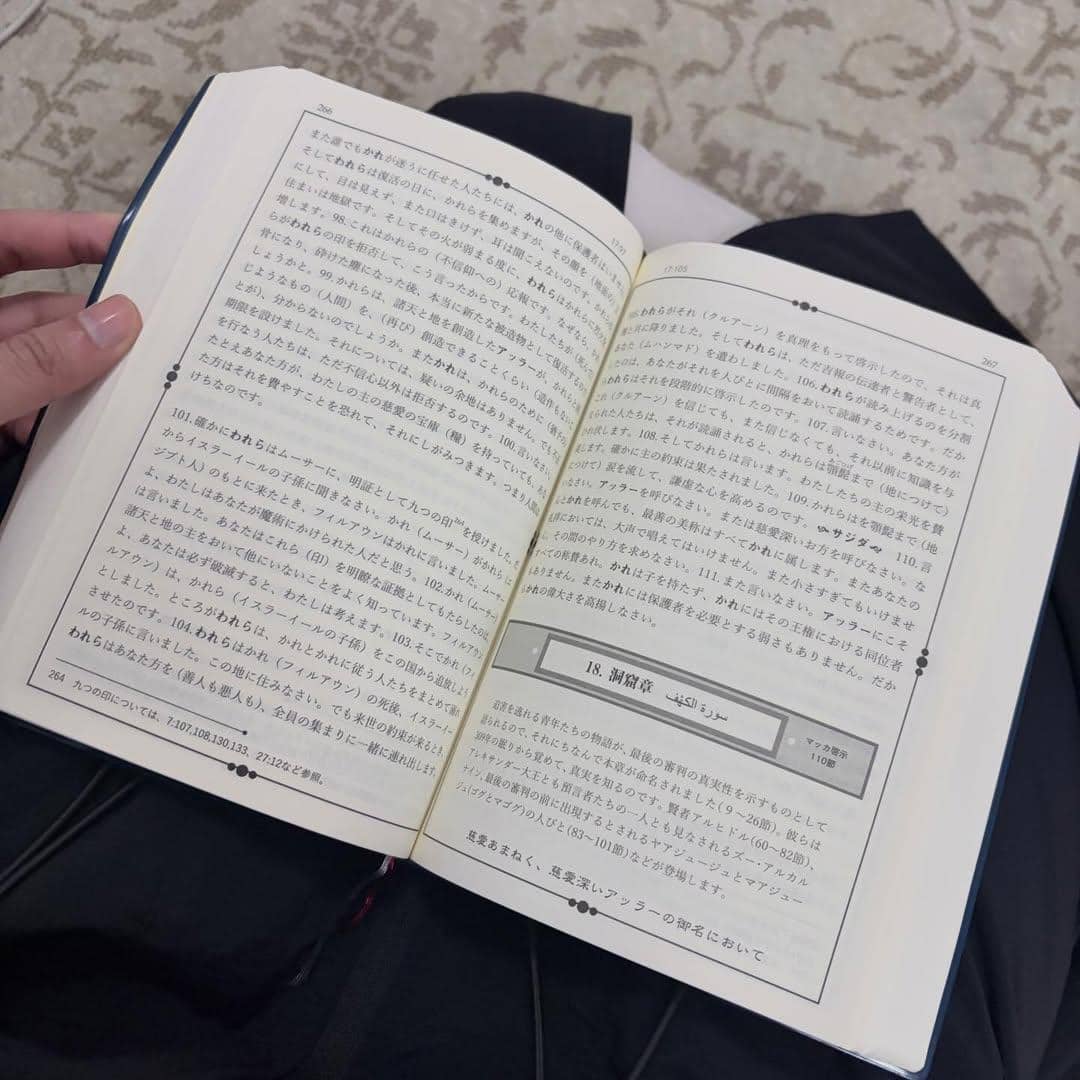 266
17:97
また誰でもかれが迷うに任せた人たちには、かれの他に保護者はいま
そしてわれらは復活の日に、かれらを集めますが、その顔を（地面の
にして、目は見えず、また口はきけず、耳は聞こえないのです。かれらの
住まいは地獄です。そしてその火が弱まる度に、われらはかれらに烈火を
増します。98.これはかれらの（不信仰への）応報です。なぜなら、かれ
らがわれらの印を拒否して、こう言ったからです。わたしたちが（死んで）
骨になり、砕けた塵になった後、本当に新たな被造物として復活するので
しょうかと。99.かれらは、諸天と地を創造したアッラーが、かれらと同
じようなもの（人間）を、（再び）創造できることくらい（造作もないこ
とが）、分からないのでしょうか。またかれは、かれらのために（猶予の）
期限を設けました。それについては、疑いの余地はありません。でも不正
を行なう人たちは、ただ不信心以外は拒否するのです。100.言いなさい。
たとえあなた方が、わたしの主の慈愛の宝庫（糧）を持っていても、あな
た方はそれを費やすことを恐れて、それにしがみつきます。つまり人間は
けちなのです。
101.確かにわれらはムーサーに、明証として九つの印264を授けました。だ
からイスラーイールの子孫に聞きなさい。かれ（ムーサー）がかれら（エ
ジプト人）のもとに来たとき、フィルアウンはかれに言いました。ムーサー
よ、わたしはあなたが魔術にかけられた人だと思う。102.かれ（ムーサー）
は言いました。あなたはこれら（印）を明瞭な証拠としてもたらしたのは、
諸天と地の主をおいて他にいないことをよく知っています。フィルアウン
よ、あなたは必ず破滅すると、わたしは考えます。103.そこでかれ（フィ
ルアウン）は、かれら（イスラーイールの子孫）をこの国から追放しよう
としました。ところがわれらは、かれとかれに従う人たちをまとめて溺れ
させたのです。104.われらはかれ（フィルアウン）の死後、イスラーイー
ルの子孫に言いました。この地に住みなさい。でも来世の約束が来るとき、
われらはあなた方を（善人も悪人も）、全員の集まりに一緒に連れ出します。
264 九つの印については、7:107,108,130,133、27:12など参照。
17:105
267
105.われらがそれ（クルアーン）を真理をもって啓示したので、それは真
理と共に降りました。そしてわれらは、ただ吉報の伝達者と警告者として、
あなた（ムハンマド）を遣わしました。106.われらが読み上げるのを分割
したのは、あなたがそれを人びとに間隔をおいて読誦するためです。だか
らわれらはそれを段階的に啓示したのです。107.言いなさい。あなた方が
これ（クルアーン）を信じても、また信じなくても、それ以前に知識を与
えられた人たちは、それが読誦されると、かれらは顎髭まで（地につけて）
ひれ伏します。108.そしてかれらは言います。わたしたちの主の栄光を賛
美します。確かに主の約束は果たされました。109.かれらは顎髭まで（地
につけて）涙を流して、謙虚な心を高めるのです。サジダ 110.言
いなさい。アッラーを呼びなさい。または慈愛深いお方を呼びなさい。な
んとかれを呼んでも、最善の美称はすべてかれに属します。またあなたの
礼拝においては、大声で唱えてはいけません。また小さすぎてもいけませ
ん。その間のやり方を求めなさい。111.また言いなさい。アッラーにこそ
すべての称賛あれ。かれは子を持たず、かれにはその王権における同位者
もありません。またかれには保護者を必要とする弱さもありません。だか
らかれの偉大さを高揚しなさい。
18. 洞窟章
سورة الكهف
マッカ啓示
110節
迫害を逃れる青年たちの物語が、最後の審判の真実性を示すものとして
語られるので、それにちなんで本章が命名されました（9～26節）。彼らは
309年の眠りから覚めて、真実を知るのです。賢者アルヒドル（60～82節）、
アレキサンダー大王とも預言者たちの一人とも見なされるズー・アルカル
ナイン、最後の審判の前に出現するとされるヤアジュージュとマアジュー
ジュ（ゴグとマゴグ）の人びと（83～101節）などが登場します。
慈愛あまねく、慈愛深いアッラーの御名において